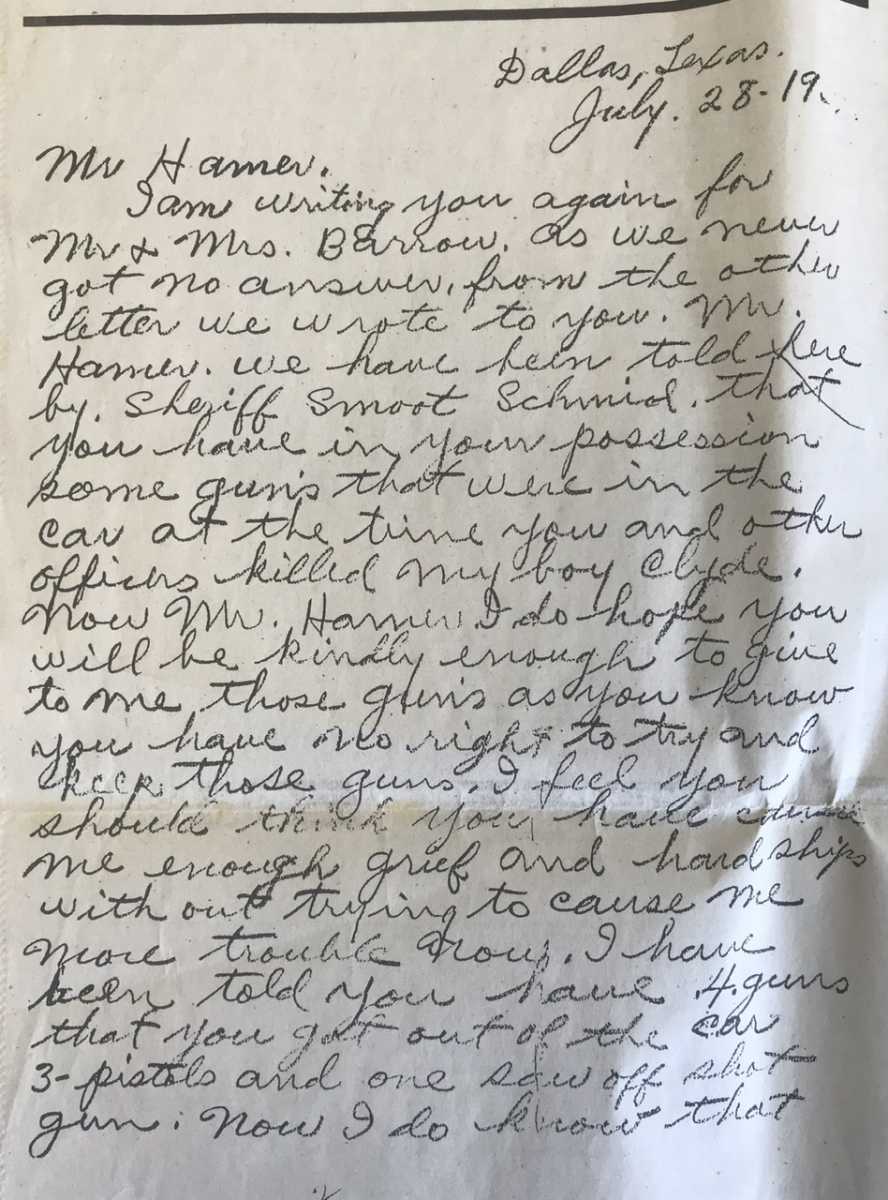 Dallas, Texas.
July. 28-19
Mr Hamer.
I am writing you again for
Mr & Mrs. Barrow. as we never
got no answer, from the other
letter we wrote to you. Mr.
Hamer. we have been told here
by. Sheriff Smoot Schmid. that
you have in your possession
some gun's that were in the
car at the time you and other
officers killed my boy Clyde.
Now Mr. Hamer I do hope you
will be kindly enough to give
to me those gun's as you know
you have no right to try and
keep those guns. I feel you
should think you have cause
me enough grief and hard ships
with out trying to cause me
more trouble now. I have
been told you have .4. guns
that you got out of the car
3-pistols and one saw off shot
gun. Now I do know that